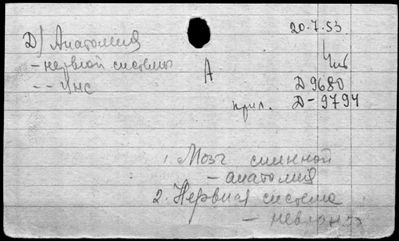 20.7.53
Д) Анатомия
- нервной системы
А
-- ЦНС
Чит
Д 9680
прил. Д-9794
1. Мозг спинной
- анатомия
2. Нервная система